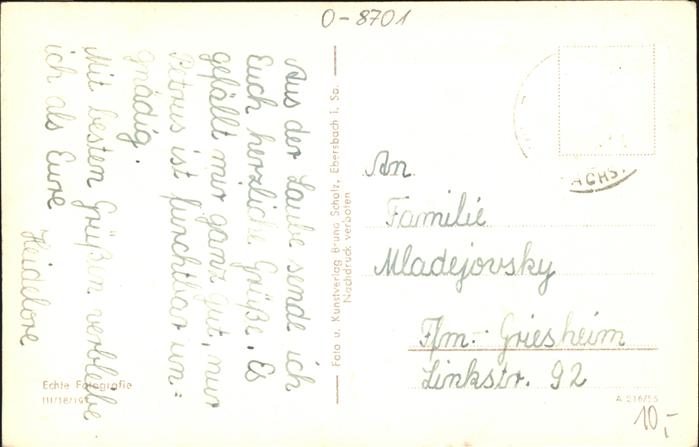 O-8701
Aus der Laube sende ich
Euch herzliche Grüße. Es
gefällt mir ganz gut, nur
Petrus ist furchtbar un=
gnädig.
Mit besten Grüßen verbleibe
ich als Eure
Heidelore
Echte Fotografie
Foto u. Kunstverlag Bruno Scholz, Ebersbach i. Sa.
Nachdruck verboten
ACHS.
An
Familie
Mladejovsky
Ffm.-Griesheim
Linkstr. 92
A 216/55
10,-